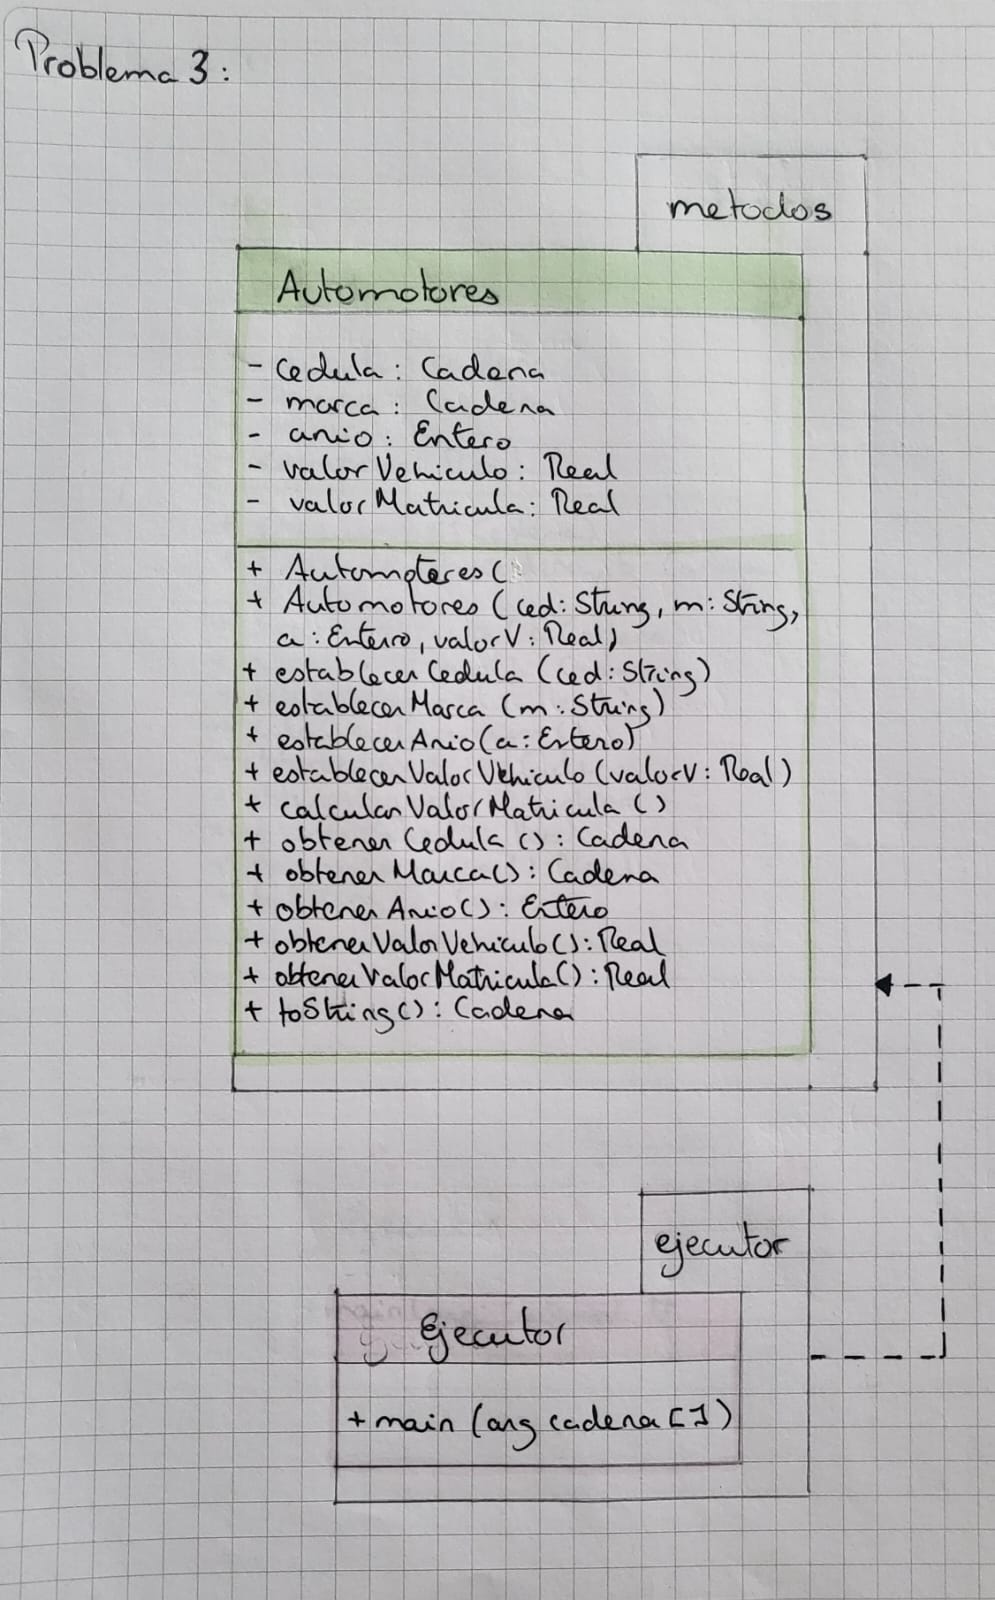 Problema 3:
metodos
Automotores
- Cedula: Cadena
- marca: Cadena
- anio: Entero
- valorVehiculo: Real
- valorMatricula: Real
+ Automoteres (
+ Automotores (ced: String, m: String,
a: Entero, valorV: Real)
+ establecerCedula (ced: String)
+ establecerMarca (m: String)
+ establecerAnio(a: Entero)
+ establecerValorVehiculo (valorV: Real)
+ calcularValorMatricula ()
+ obtenerCedula (): Cadena
+ obtenerMarca(): Cadena
+ obtenerAnio(): Entero
+ obtenerValorVehiculo(): Real
+ obtenerValorMatricula(): Real
+ toString(): Cadena
ejecutor
Ejecutor
+ main (arg cadena [])